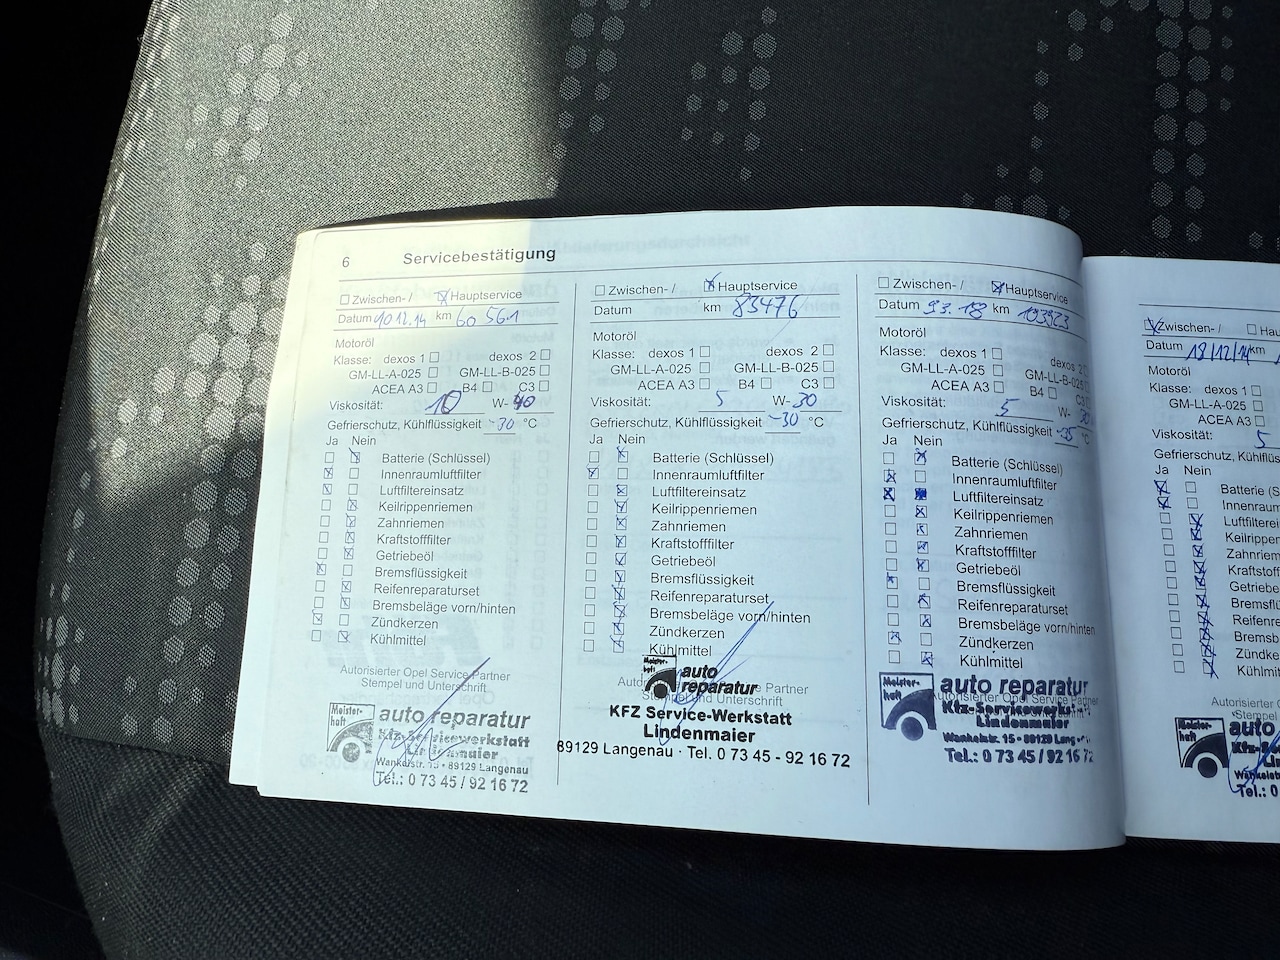 6 Servicebestätigung
Zwischen- / Hauptservice
Datum km 60 561
Motoröl
Klasse: dexos 1 dexos 2
GM-LL-A-025 GM-LL-B-025
ACEA A3 B4 C3
Viskosität: 10 W- 40
Gefrierschutz, Kühlflüssigkeit -30 °C
Ja Nein
Batterie (Schlüssel)
Innenraumluftfilter
Luftfiltereinsatz
Keilrippenriemen
Zahnriemen
Kraftstofffilter
Getriebeöl
Bremsflüssigkeit
Reifenreparaturset
Bremsbeläge vorn/hinten
Zündkerzen
Kühlmittel
Autorisierter Opel Service Partner
Stempel und Unterschrift
Meister-
haft
auto reparatur
Kfz-Servicewerkstatt
Lindenmaier
Wankelstr. 15 • 89129 Langenau
Tel.: 0 73 45 / 92 16 72
Zwischen- / Hauptservice
Datum km 83476
Motoröl
Klasse: dexos 1 dexos 2
GM-LL-A-025 GM-LL-B-025
ACEA A3 B4 C3
Viskosität: 5 W- 30
Gefrierschutz, Kühlflüssigkeit -30 °C
Ja Nein
Batterie (Schlüssel)
Innenraumluftfilter
Luftfiltereinsatz
Keilrippenriemen
Zahnriemen
Kraftstofffilter
Getriebeöl
Bremsflüssigkeit
Reifenreparaturset
Bremsbeläge vorn/hinten
Zündkerzen
Kühlmittel
Service Partner
Stempel und Unterschrift
Meister-
haft
auto
reparatur
KFZ Service-Werkstatt
Lindenmaier
89129 Langenau · Tel. 0 73 45 - 92 16 72
Zwischen- / Hauptservice
Datum km
Motoröl
Klasse: dexos 1 dexos 2
GM-LL-A-025 GM-LL-B-025
ACEA A3 B4 C3
Viskosität: 5 W- 30
Gefrierschutz, Kühlflüssigkeit -35 °C
Ja Nein
Batterie (Schlüssel)
Innenraumluftfilter
Luftfiltereinsatz
Keilrippenriemen
Zahnriemen
Kraftstofffilter
Getriebeöl
Bremsflüssigkeit
Reifenreparaturset
Bremsbeläge vorn/hinten
Zündkerzen
Kühlmittel
Autorisierter Opel Service Partner
Meister-
haft
auto reparatur
Kfz-Servicewerkst
Lindenmaier
Wankelstr. 15 • 89129 Lang
Tel.: 0 73 45 / 92 16 72
Zwischen- / Haup
Datum km
Motoröl
Klasse: dexos 1
GM-LL-A-025
ACEA A3
Viskosität: 5
Gefrierschutz, Kühlflüs
Ja Nein
Batterie (S
Innenraum
Luftfiltere
Keilrippen
Zahnriem
Kraftstoff
Getriebe
Bremsflü
Reifenre
Bremsb
Zündke
Kühlmi
Autorisierter
Stempel
Meister-
haft
auto
Tel.: 0